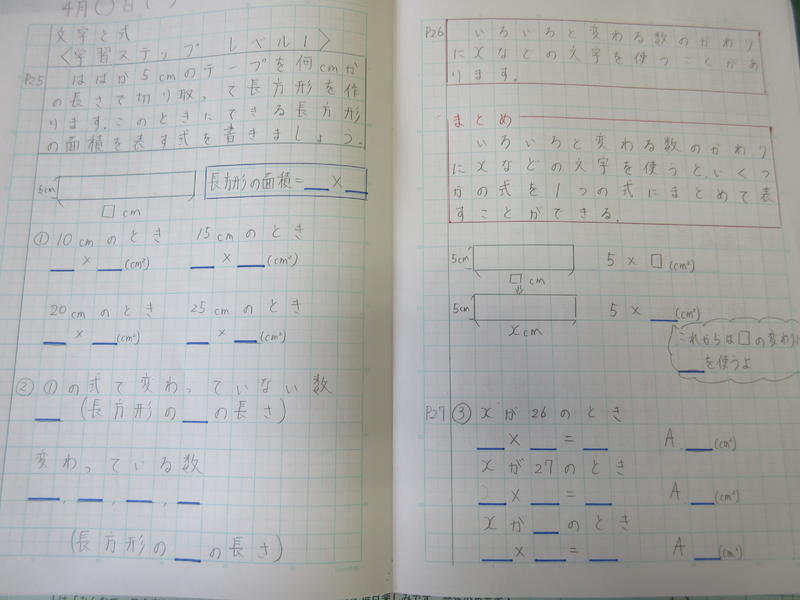 4月◯日( )
文字と式
〈学習ステップ レベル1〉
P25
はばが5cmのテープを何cmか
の長さで切り取って長方形を作
ります。このときにできる長方形
の面積を表す式を書きましょう。
5cm
長方形の面積=__×__
□cm
①10cmのとき 15cmのとき
__×__(cm²) __×__(cm²)
20cmのとき 25cmのとき
__×__(cm²) __×__(cm²)
②①の式で変わっていない数
__ (長方形の__の長さ)
変わっている数
__, __, __, __
(長方形の__の長さ)
P26
いろいろと変わる数のかわり
にxなどの文字を使うことがあ
ります。
まとめ
いろいろと変わる数のかわり
にxなどの文字を使うと、いくつ
かの式を1つの式にまとめて表
すことができる。
5cm 5×□(cm²)
□cm
↓
5cm 5×__(cm²)
xcm
これからは□の変わりに
__を使うよ
P27 ③xが26のとき
__×__=__ A.__(cm²)
xが27のとき
__×__=__ A.__(cm²)
xが__のとき
__×__=__ A __(cm²)